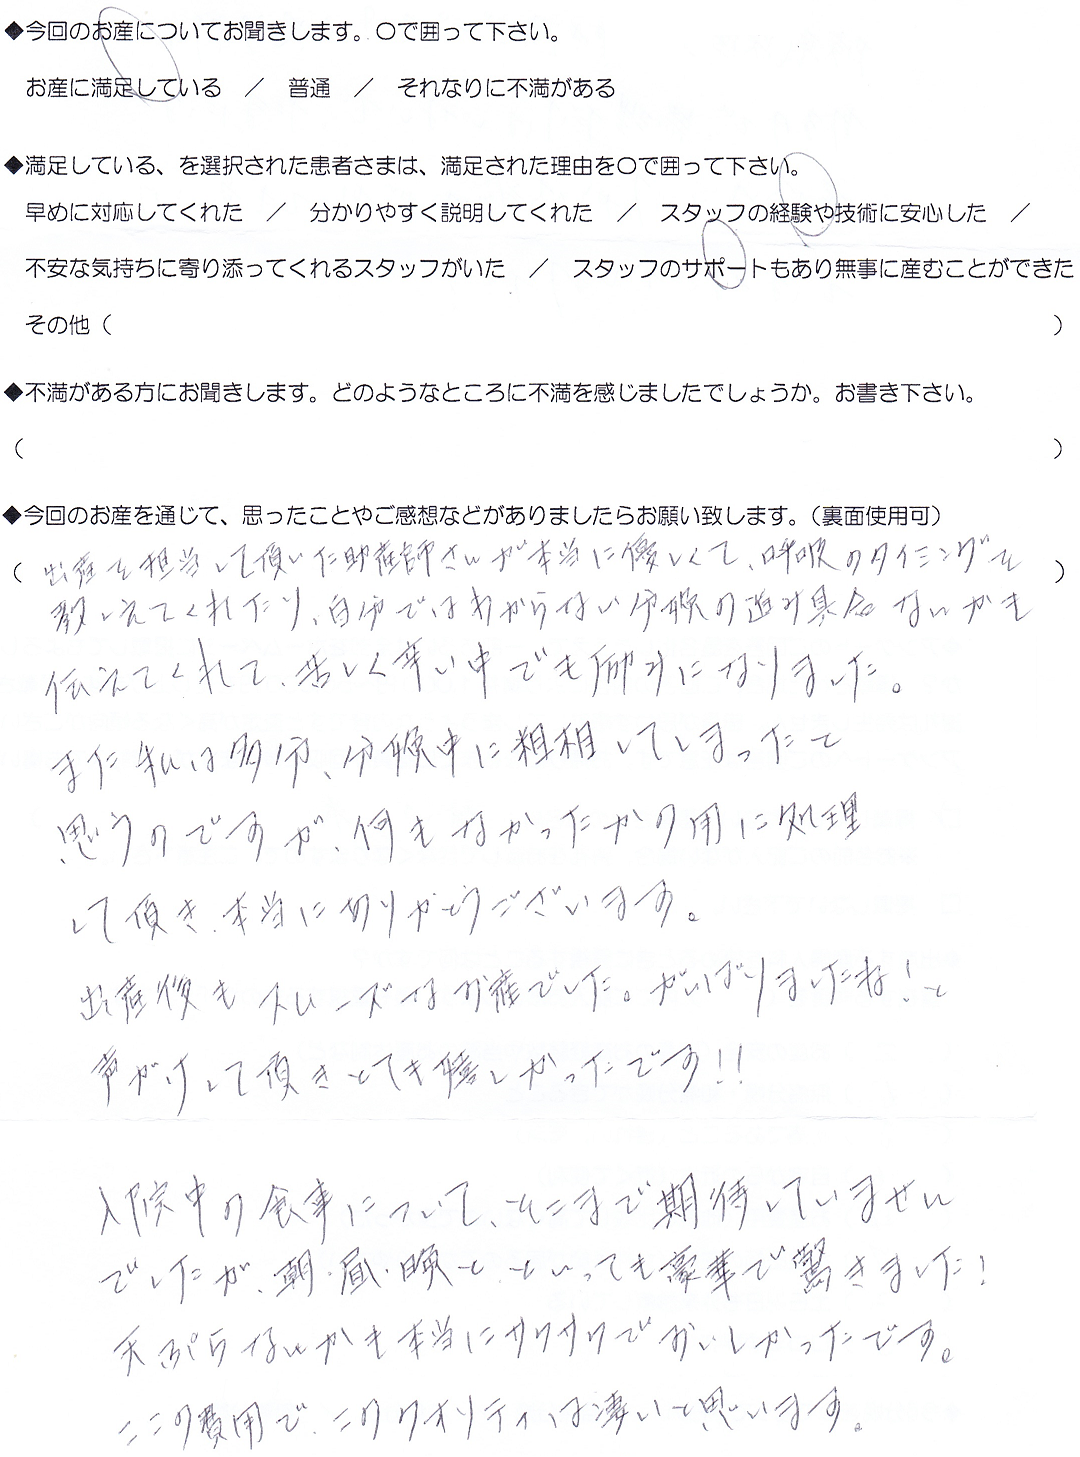 ◆今回のお産についてお聞きします。〇で囲って下さい。
お産に満足している　／　普通　／　それなりに不満がある
◆満足している、を選択された患者さまは、満足された理由を〇で囲って下さい。
早めに対応してくれた　／　分かりやすく説明してくれた　／　スタッフの経験や技術に安心した　／
不安な気持ちに寄り添ってくれるスタッフがいた　／　スタッフのサポートもあり無事に産むことができた
その他（　　　）
◆不満がある方にお聞きします。どのようなところに不満を感じましたでしょうか。お書き下さい。
（　　　）
◆今回のお産を通じて、思ったことやご感想などがありましたらお願い致します。（裏面使用可）
（出産を担当して頂いた助産師さんが本当に優しくて、呼吸のタイミングを）
教しえてくれたり、自分ではわからない分娩の進み具合なんかも
伝えてくれて、苦しく辛い中でも励みになりました。
また私は多分、分娩中に粗相してしまったと
思うのですが、何もなかったかの用に処理
して頂き、本当にありがとうございます。
出産後もスムーズなお産でした。がんばりましたね！と
声がけして頂きとても嬉しかったです！！
入院中の食事について、そこまで期待していません
でしたが、朝・昼・晩と、といっても豪華で驚きました！
天ぷらなんかも本当にサクサクでおいしかったです。
ここの費用で、このクオリティは凄いと思います。